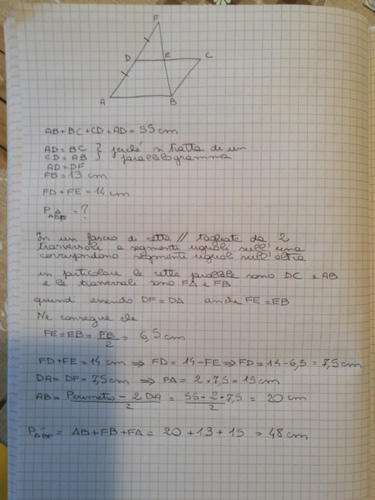 F
D E C
A B
AB+BC+CD+AD = 55 cm
AD = BC } perché si tratta di un
CD = AB } parallelogramma
AD = DF
FB = 13 cm
FD + FE = 14 cm
P ABF = ?
In un fascio di rette // tagliate da 2
trasversali a segmenti uguali sull'una
corrispondono segmenti uguali sull'altra
in particolare le rette parallele sono DC e AB
e le trasversali sono FA e FB
quindi essendo DF = DA anche FE = EB
Ne consegue che
FE = EB = FB/2 = 6,5 cm
FD + FE = 14 cm ⇒ FD = 14 - FE ⇒ FD = 14 - 6,5 = 7,5 cm
DA = DF = 7,5 cm ⇒ FA = 2 · 7,5 = 15 cm
AB = (Perimetro - 2 DA)/2 = (55 - 2 · 7,5)/2 = 20 cm
P ABF = AB + FB + FA = 20 + 13 + 15 = 48 cm